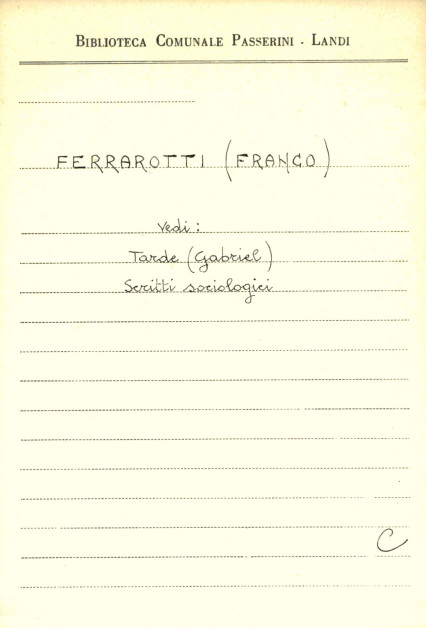 BIBLIOTECA COMUNALE PASSERINI - LANDI
FERRAROTTI (FRANCO)
Vedi:
Tarde (Gabriel)
Scritti sociologici
C